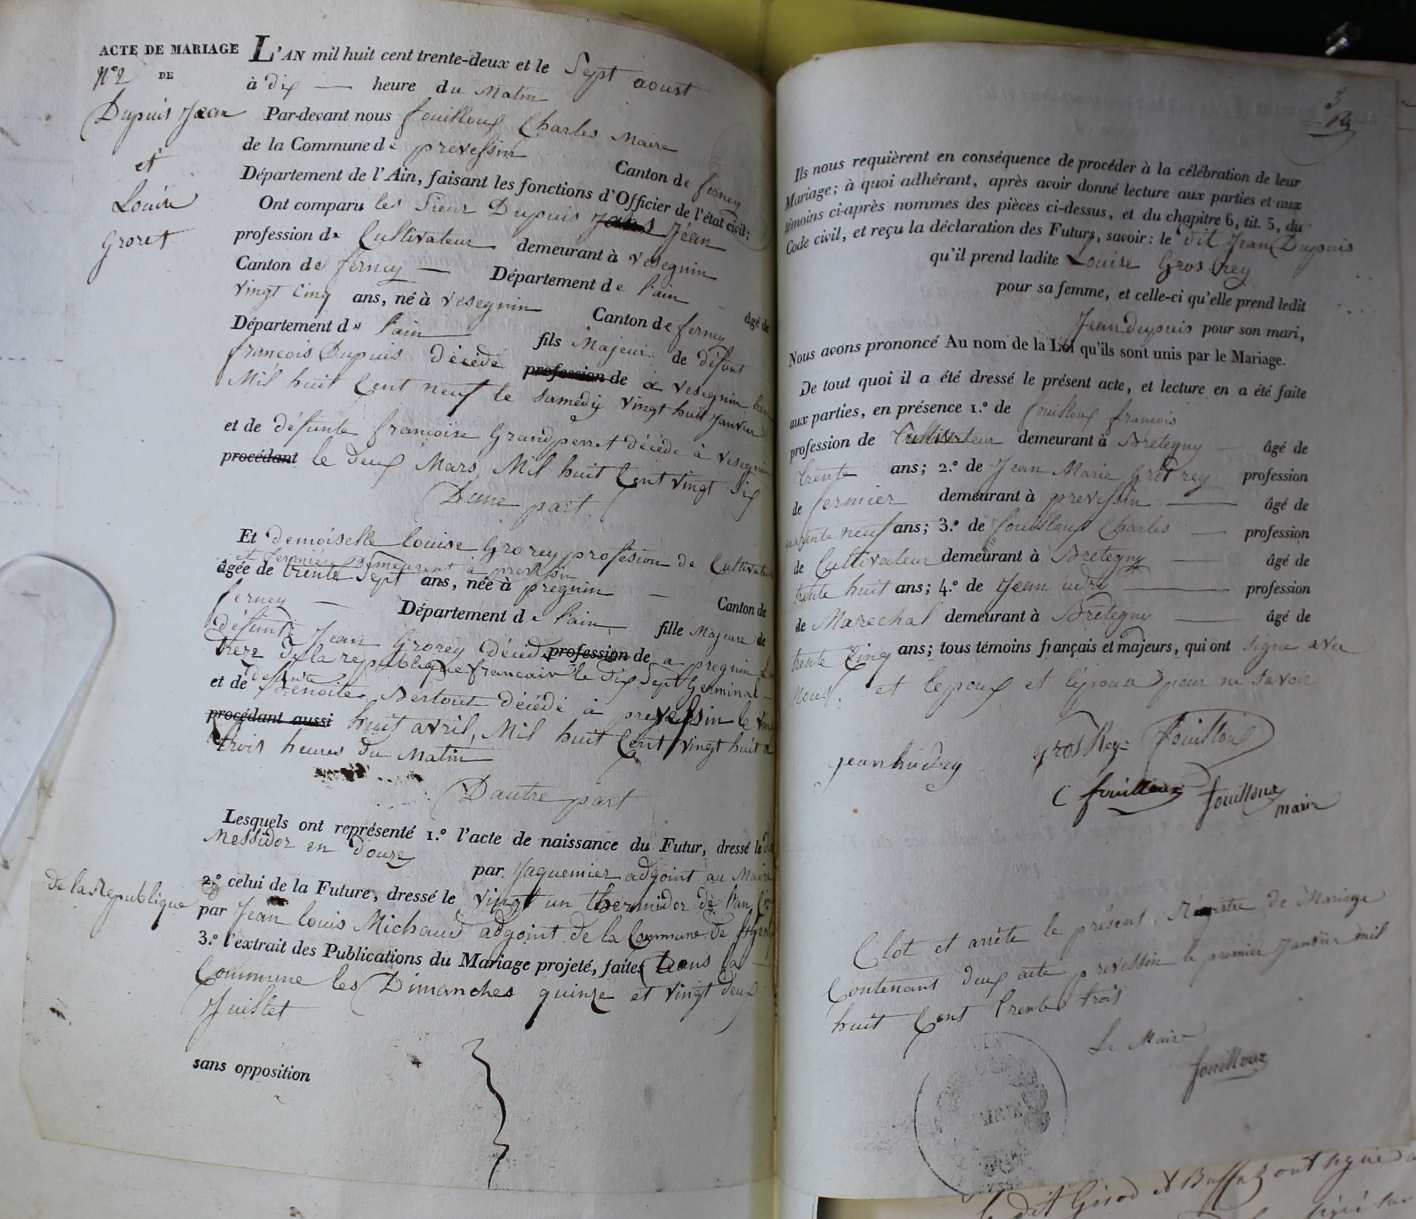 ACTE DE MARIAGE
N.º 2 DE
Dupuis Jean
et
Louise
Groret
L'AN mil huit cent trente-deux et le Sept aoust
à dix heure du Matin
Par-devant nous fouilloux Charles Maire
de la Commune de prevessin Canton de ferney
Département de l'Ain, faisant les fonctions d'Officier de l'état civil:
Ont comparu les Sieur Dupuis Jean
profession de Cultivateur demeurant à Vesegnin
Canton de ferney Département de l'ain âgé de
vingt Cinq ans, né à Vesegnin Canton de ferney
Département de l'ain fils Majeur de défunt
francois Dupuis décédé profession de à Vesegnin
Mil huit Cent neuf le Samedy vingt huit Janvier
et de défunte francoise Grandperret décédé à Vesegnin
procédant le deux Mars Mil huit Cent vingt Six
Dune part
Et demoiselle louise Grorey profession de Cultivateur
et fermière Demeurant à prevessin
âgée de trente Sept ans, née à pregnin Canton de
ferney Département de l'ain fille Majeure de
défunt Jean Grorey décédé profession de à pregnin
de la republique francaise le dix Sept Germinal
et de défunte Bertout décédé à prevessin le
procédant aussi huit avril, Mil huit Cent vingt huit à
trois heures du Matin
Dautre part
Lesquels ont représenté 1.º l'acte de naissance du Futur, dressé le
Messidor en douze par Jaquemier adjoint au Maire
2.º celui de la Future, dressé le vingt un thermidor de l'an
de la Republique
par Jean louis Michaud adjoint de la Commune de
3.º l'extrait des Publications du Mariage projeté, faites Dans la
Commune les Dimanches quinze et vingt deux
Juillet
sans opposition
3
Ils nous requièrent en conséquence de procéder à la célébration de leur
Mariage; à quoi adhérant, après avoir donné lecture aux parties et aux
témoins ci-après nommés des pièces ci-dessus, et du chapitre 6, tit. 5, du
Code civil, et reçu la déclaration des Futurs, savoir: le dit Jean Dupuis
qu'il prend ladite Louise Gros Rey
pour sa femme, et celle-ci qu'elle prend ledit
Jean dupuis pour son mari,
Nous avons prononcé Au nom de la Loi qu'ils sont unis par le Mariage.
De tout quoi il a été dressé le présent acte, et lecture en a été faite
aux parties, en présence 1.º de fouilloux francois
profession de Cultivateur demeurant à Bretegny âgé de
trente ans; 2.º de Jean Marie Gros rey profession
de fermier demeurant à prevessin âgé de
neuf ans; 3.º de fouilloux Charles profession
de Cultivateur demeurant à Bretegny âgé de
trente huit ans; 4.º de Jean udry profession
de Marechal demeurant à Bretigny âgé de
trente Cinq ans; tous témoins français et majeurs, qui ont signe avec
nous. et lepoux et lepouse pour ne Savoir
Jean hudry gros Rey fouilloux
C fouilloux fouilloux
maire
Clot et arrêté le présent Régistre de Mariage
Contenant deux acte prevessin le premier Janvier mil
huit Cent trente trois
Le Maire
fouilloux
le dit Girod et Buffat ont signé